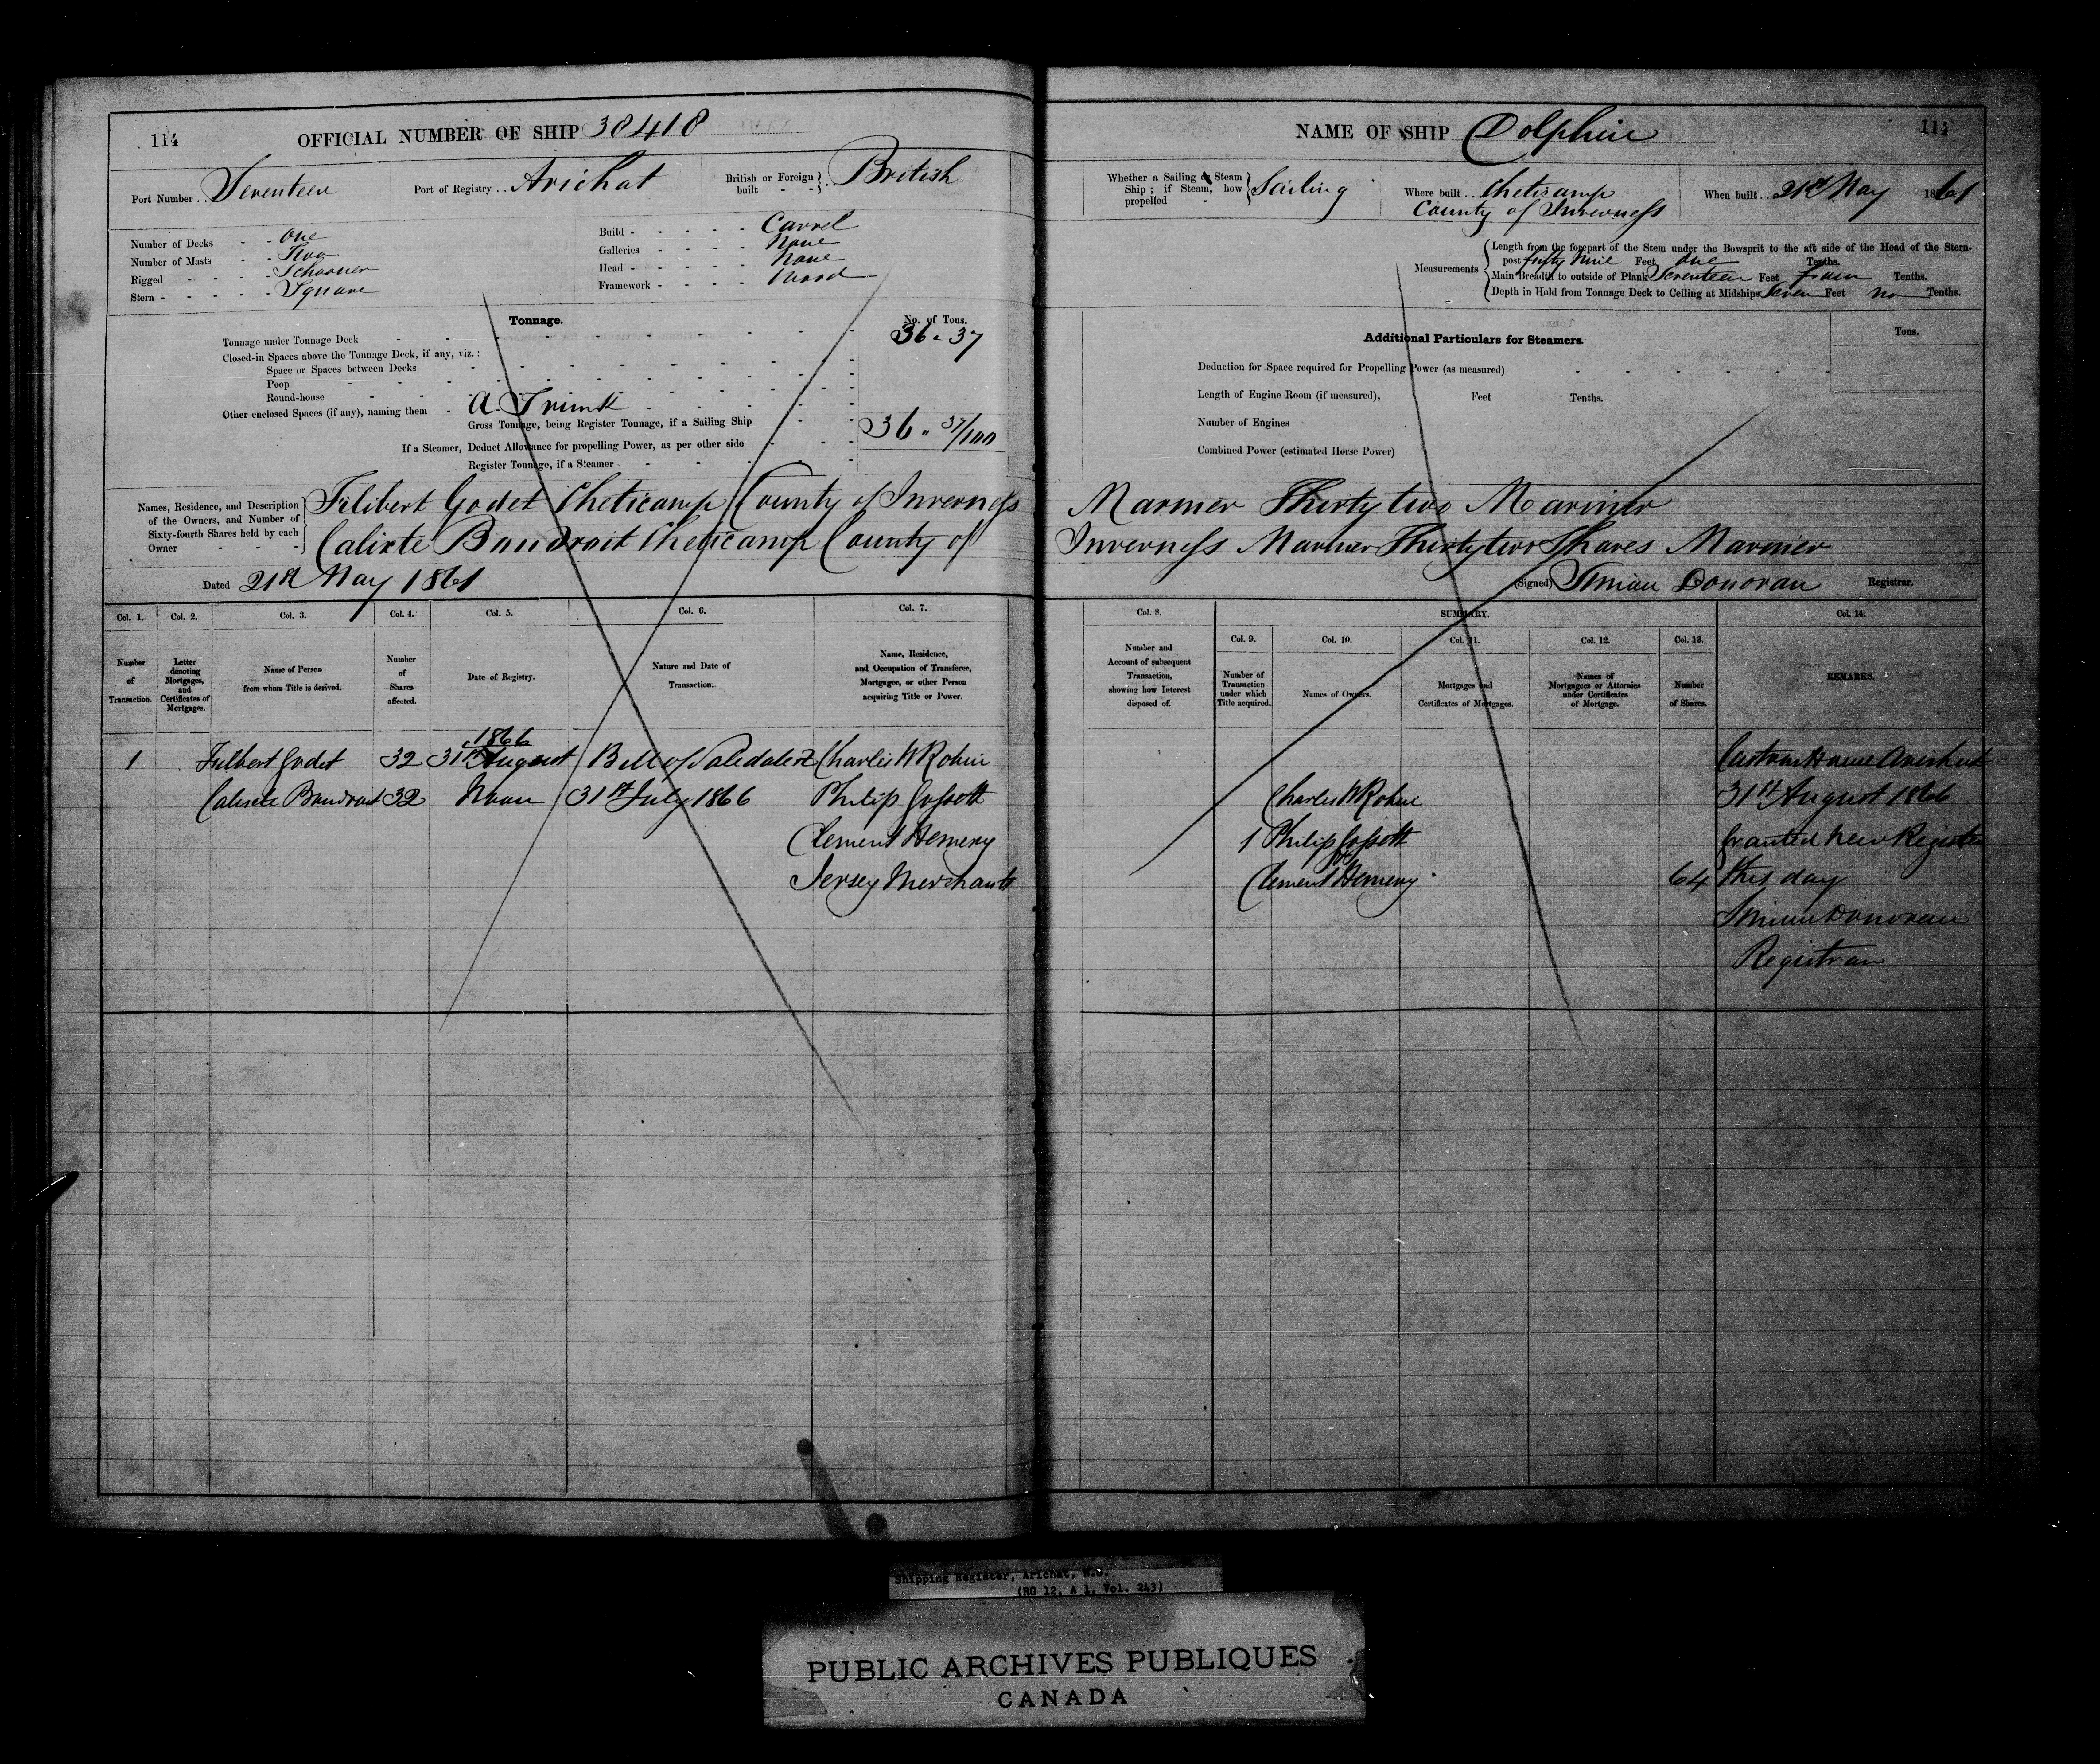 114
OFFICIAL NUMBER OF SHIP 38418
Port Number . . Seventeen Port of Registry . . Arichat British or Foreign built - - British
Number of Decks - - One
Number of Masts - - Two
Rigged - - - - Schooner
Stern - - - - - Square
Build - - - - - Carvel
Galleries - - - - None
Head - - - - - None
Framework - - - - Wood
Tonnage.
No. of Tons.
Tonnage under Tonnage Deck 36 . 37
Closed-in Spaces above the Tonnage Deck, if any, viz.:
Space or Spaces between Decks
Poop
Round-house
Other enclosed Spaces (if any), naming them - A. Trunk
Gross Tonnage, being Register Tonnage, if a Sailing Ship 36 " 37/100
If a Steamer, Deduct Allowance for propelling Power, as per other side
Register Tonnage, if a Steamer
Names, Residence, and Description of the Owners, and Number of Sixty-fourth Shares held by each Owner
Filibert Godet Cheticamp County of Inverness
Calixte Boudroit Cheticamp County of
Dated 21st May 1861
Col. 1. Col. 2. Col. 3. Col. 4. Col. 5. Col. 6. Col. 7.
Number of Transaction.
Letter denoting Mortgages, and Certificates of Mortgages.
Name of Person from whom Title is derived.
Number of Shares affected.
Date of Registry.
Nature and Date of Transaction.
Name, Residence, and Occupation of Transferee, Mortgagee, or other Person acquiring Title or Power.
1866
1 Filbert Godet 32 31st August Bill of Sale dated Charles W Robin
Calixte Boudroit 32 Noon 31st July 1866 Philip Gossett
Clement Hemery
Jersey Merchants
NAME OF SHIP Dolphin
114
Whether a Sailing or Steam Ship; if Steam, how propelled - Sailing
Where built . . Cheticamp
County of Inverness
When built . . 21st May 1861
Measurements
Length from the forepart of the Stem under the Bowsprit to the aft side of the Head of the Stern-
post Forty Nine Feet One Tenths.
Main Breadth to outside of Plank Seventeen Feet Tenths.
Depth in Hold from Tonnage Deck to Ceiling at Midships Seven Feet no Tenths.
Additional Particulars for Steamers.
Tons.
Deduction for Space required for Propelling Power (as measured)
Length of Engine Room (if measured), Feet Tenths.
Number of Engines
Combined Power (estimated Horse Power)
Marmer Thirty two Mariner
Inverness Mariner Thirty two Shares Marmier
(Signed) Simian Donovan Registrar.
Col. 8. SUMMARY. Col. 14.
Col. 9. Col. 10. Col. 11. Col. 12. Col. 13.
Number and Account of subsequent Transaction, showing how Interest disposed of.
Number of Transaction under which Title acquired.
Names of Owners.
Mortgages and Certificates of Mortgages.
Names of Mortgagees or Attornies under Certificates of Mortgage.
Number of Shares.
REMARKS.
Custom House Arichat
Charles W Robin 31st August 1866
1 Philip Gossett Granted New Register
Clement Hemery 64 this day
Simian Donovan
Registrar
Shipping Register, Arichat, N.S.
(RG 12, A 1, Vol. 243)
PUBLIC ARCHIVES PUBLIQUES
CANADA